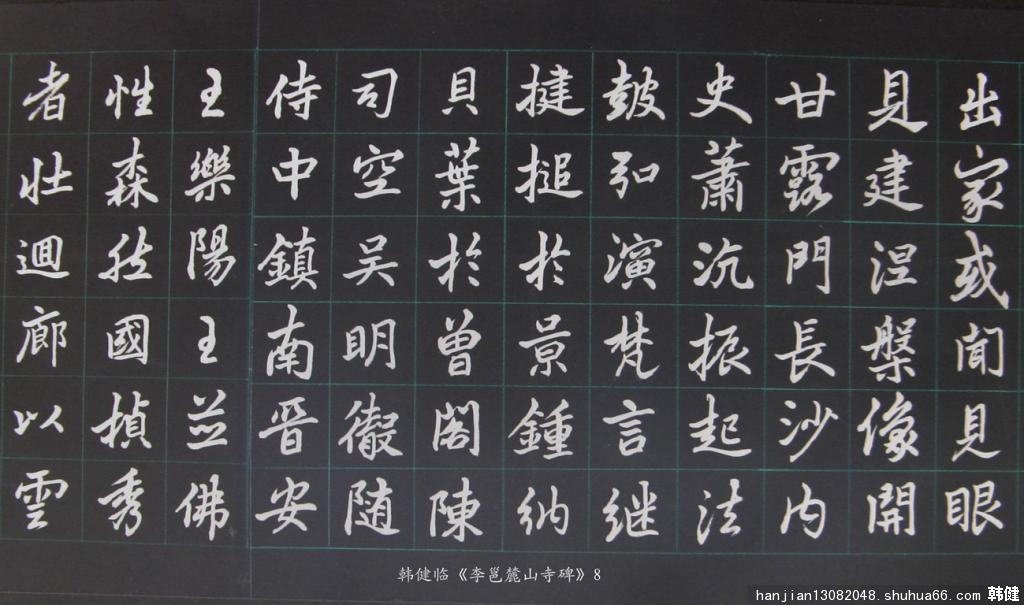 出家或聞見眼
見建涅槃像開
甘露門長沙内
史蕭沆振起法
鼓弘演梵言継
揵搥於景鍾納
貝葉於曾閣陳
司空吴明徹随
侍中鎮南晋安
王樂陽王並佛
性森然國楨秀
者壮迴廊以雲
韩健临《李邕麓山寺碑》8
hanjian13082048.shuhua66.com 韩健